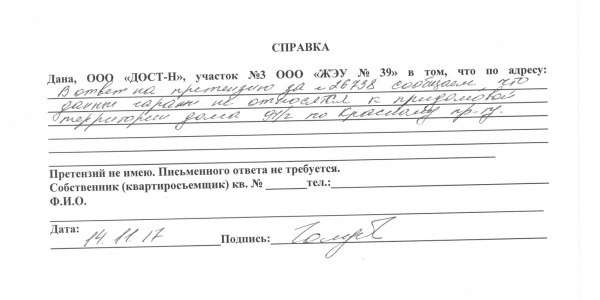 СПРАВКА
Дана, ООО «ДОСТ-Н», участок №3 ООО «ЖЭУ № 39» в том, что по адресу:
В ответ на претензию за №26738 сообщаем, что
данные гаражи не относятся к придомовой
территории дома 94/2 по Красному пр-ту.
Претензий не имею. Письменного ответа не требуется.
Собственник (квартиросъемщик) кв. № ________тел.:
Ф.И.О.
Дата: 14.11.17 Подпись: